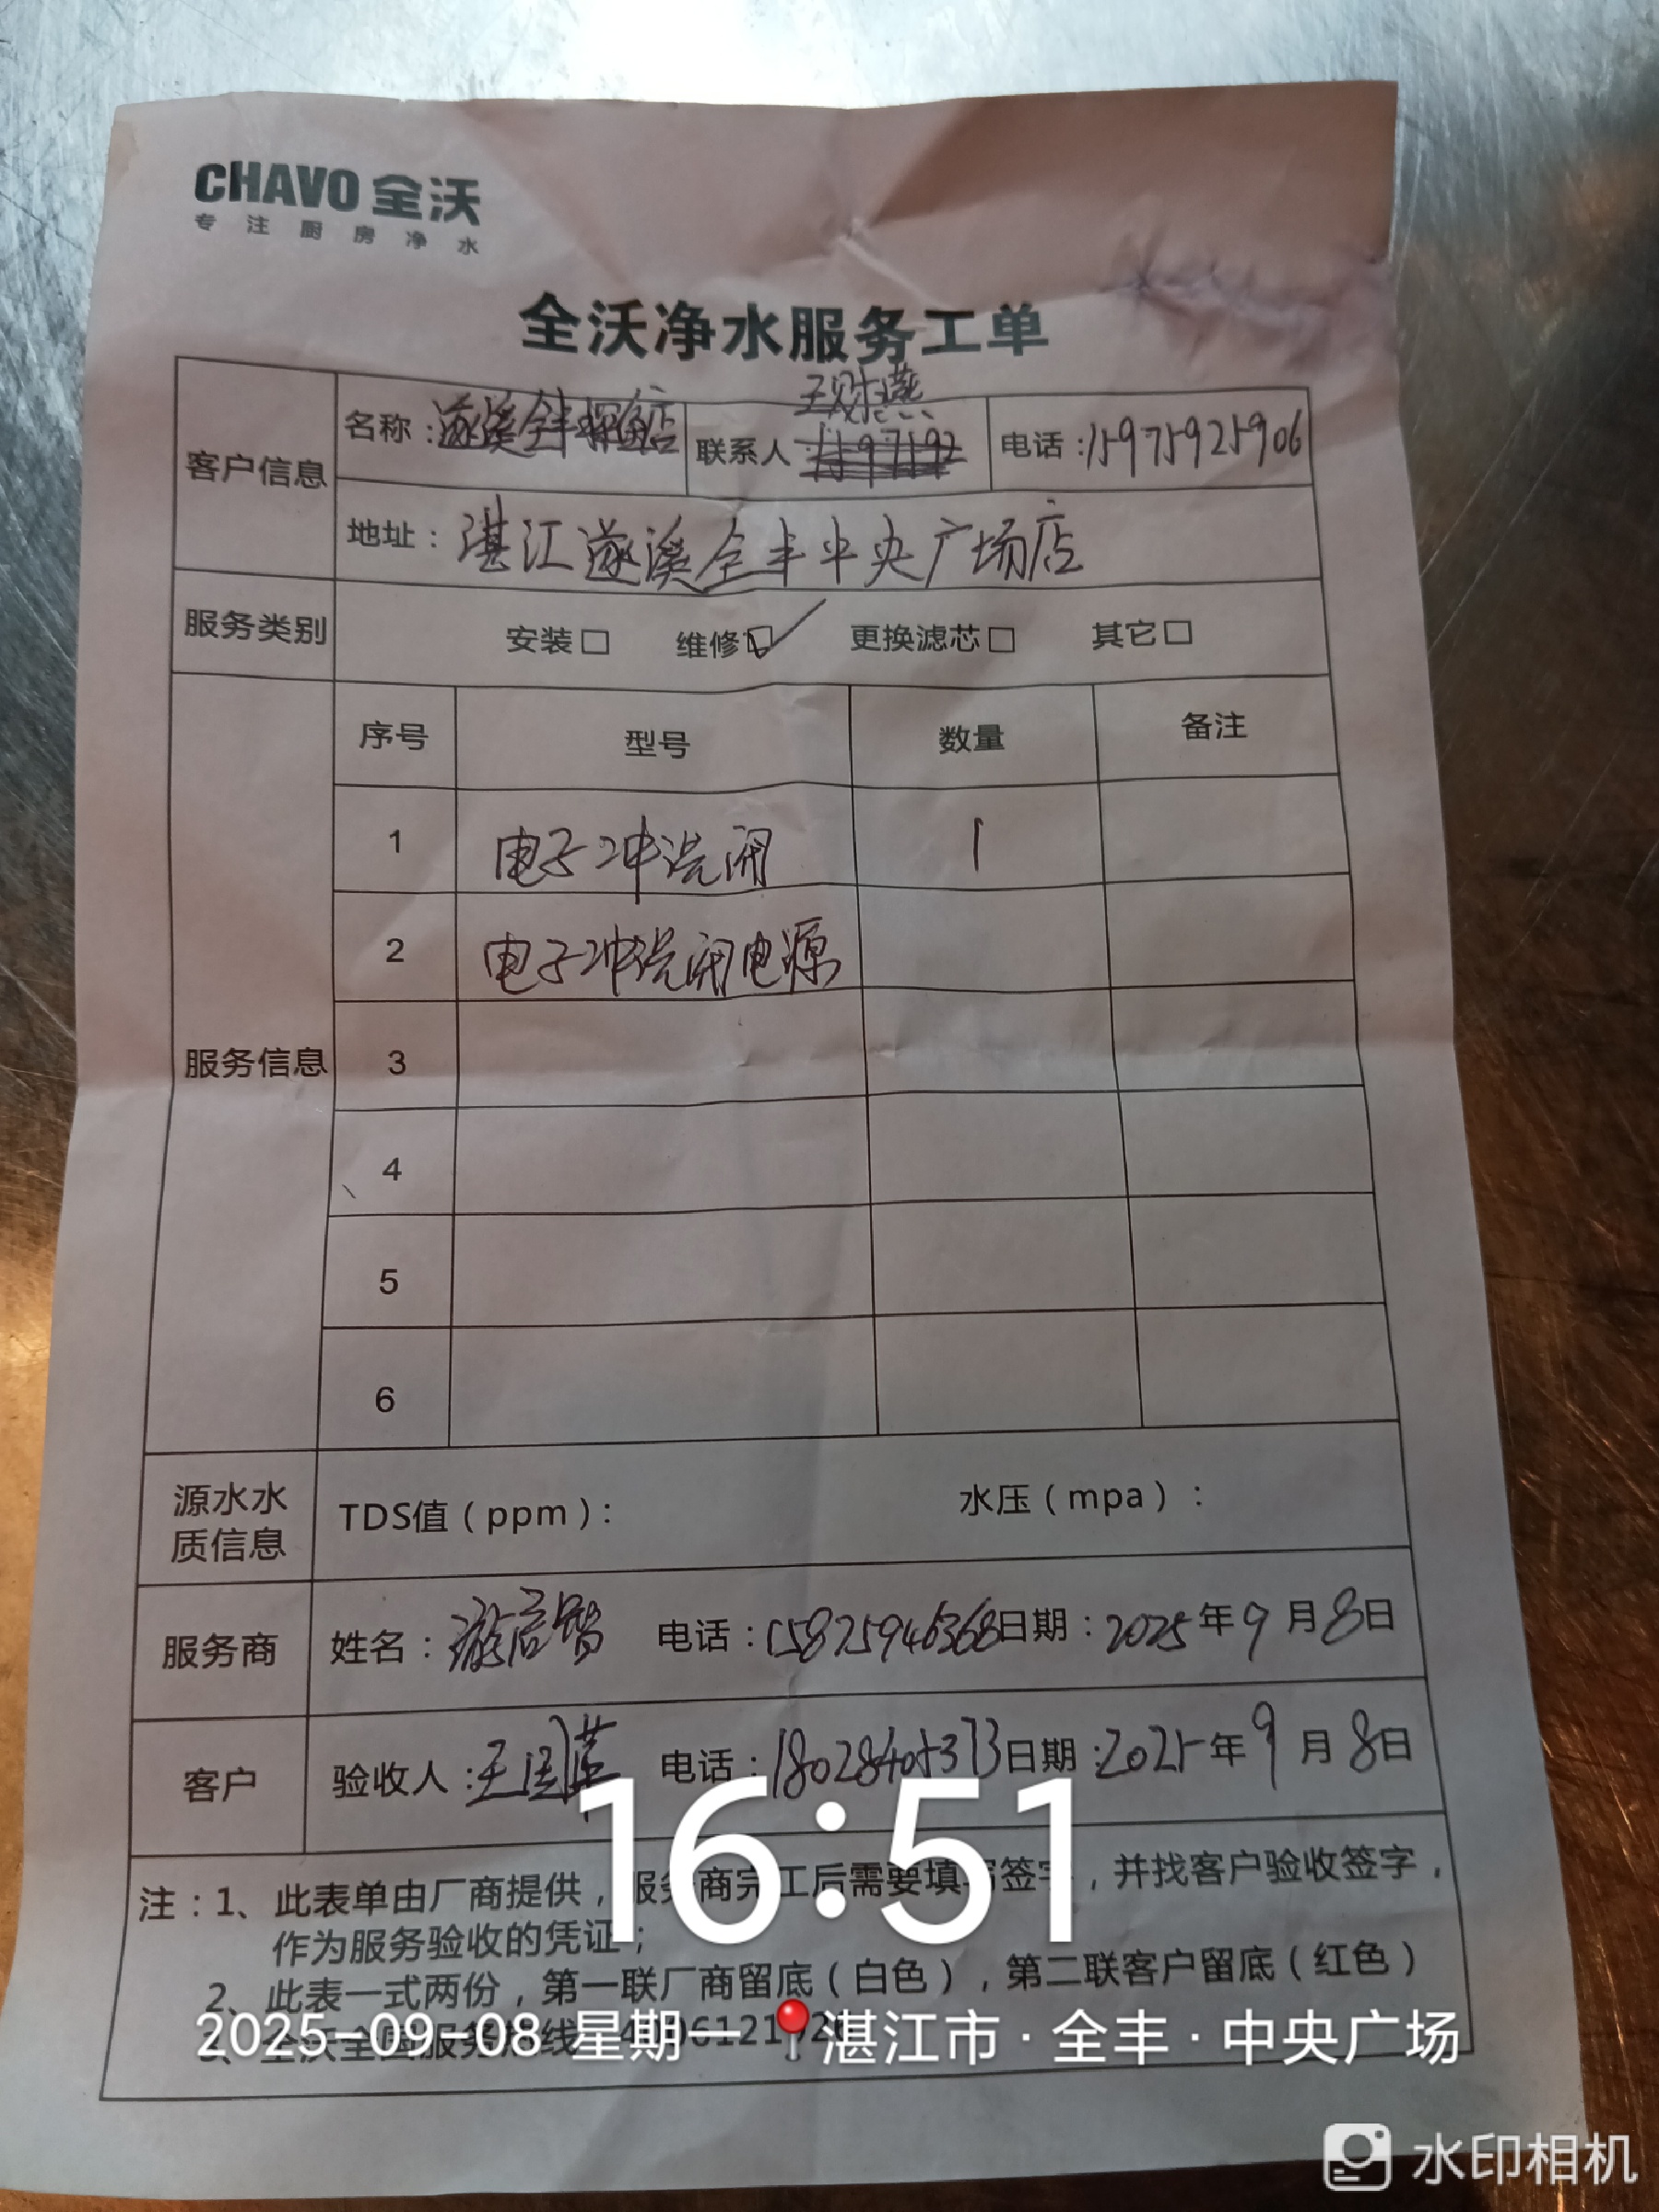 CHAVO 全沃
专注厨房净水
全沃净水服务工单
客户信息
名称：遂溪全丰探鱼店
联系人：王财燕
电话：15975925906
地址：湛江遂溪全丰中央广场店
服务类别
安装□ 维修☑ 更换滤芯□ 其它□
服务信息
序号 型号 数量 备注
1 电子冲洗阀 1
2 电子冲洗阀电源
3
4
5
6
源水水质信息
TDS值（ppm）： 水压（mpa）：
服务商
姓名： 电话：15875946368 日期：2025年9月8日
客户
验收人：王国 电话：18028405373 日期：2025年9月8日
注：1、此表单由厂商提供，服务商完工后需要填写签字，并找客户验收签字，
作为服务验收的凭证；
2、此表一式两份，第一联厂商留底（白色），第二联客户留底（红色）
3、全沃全国服务热线
16:51
2025-09-08 星期一 湛江市·全丰·中央广场
水印相机